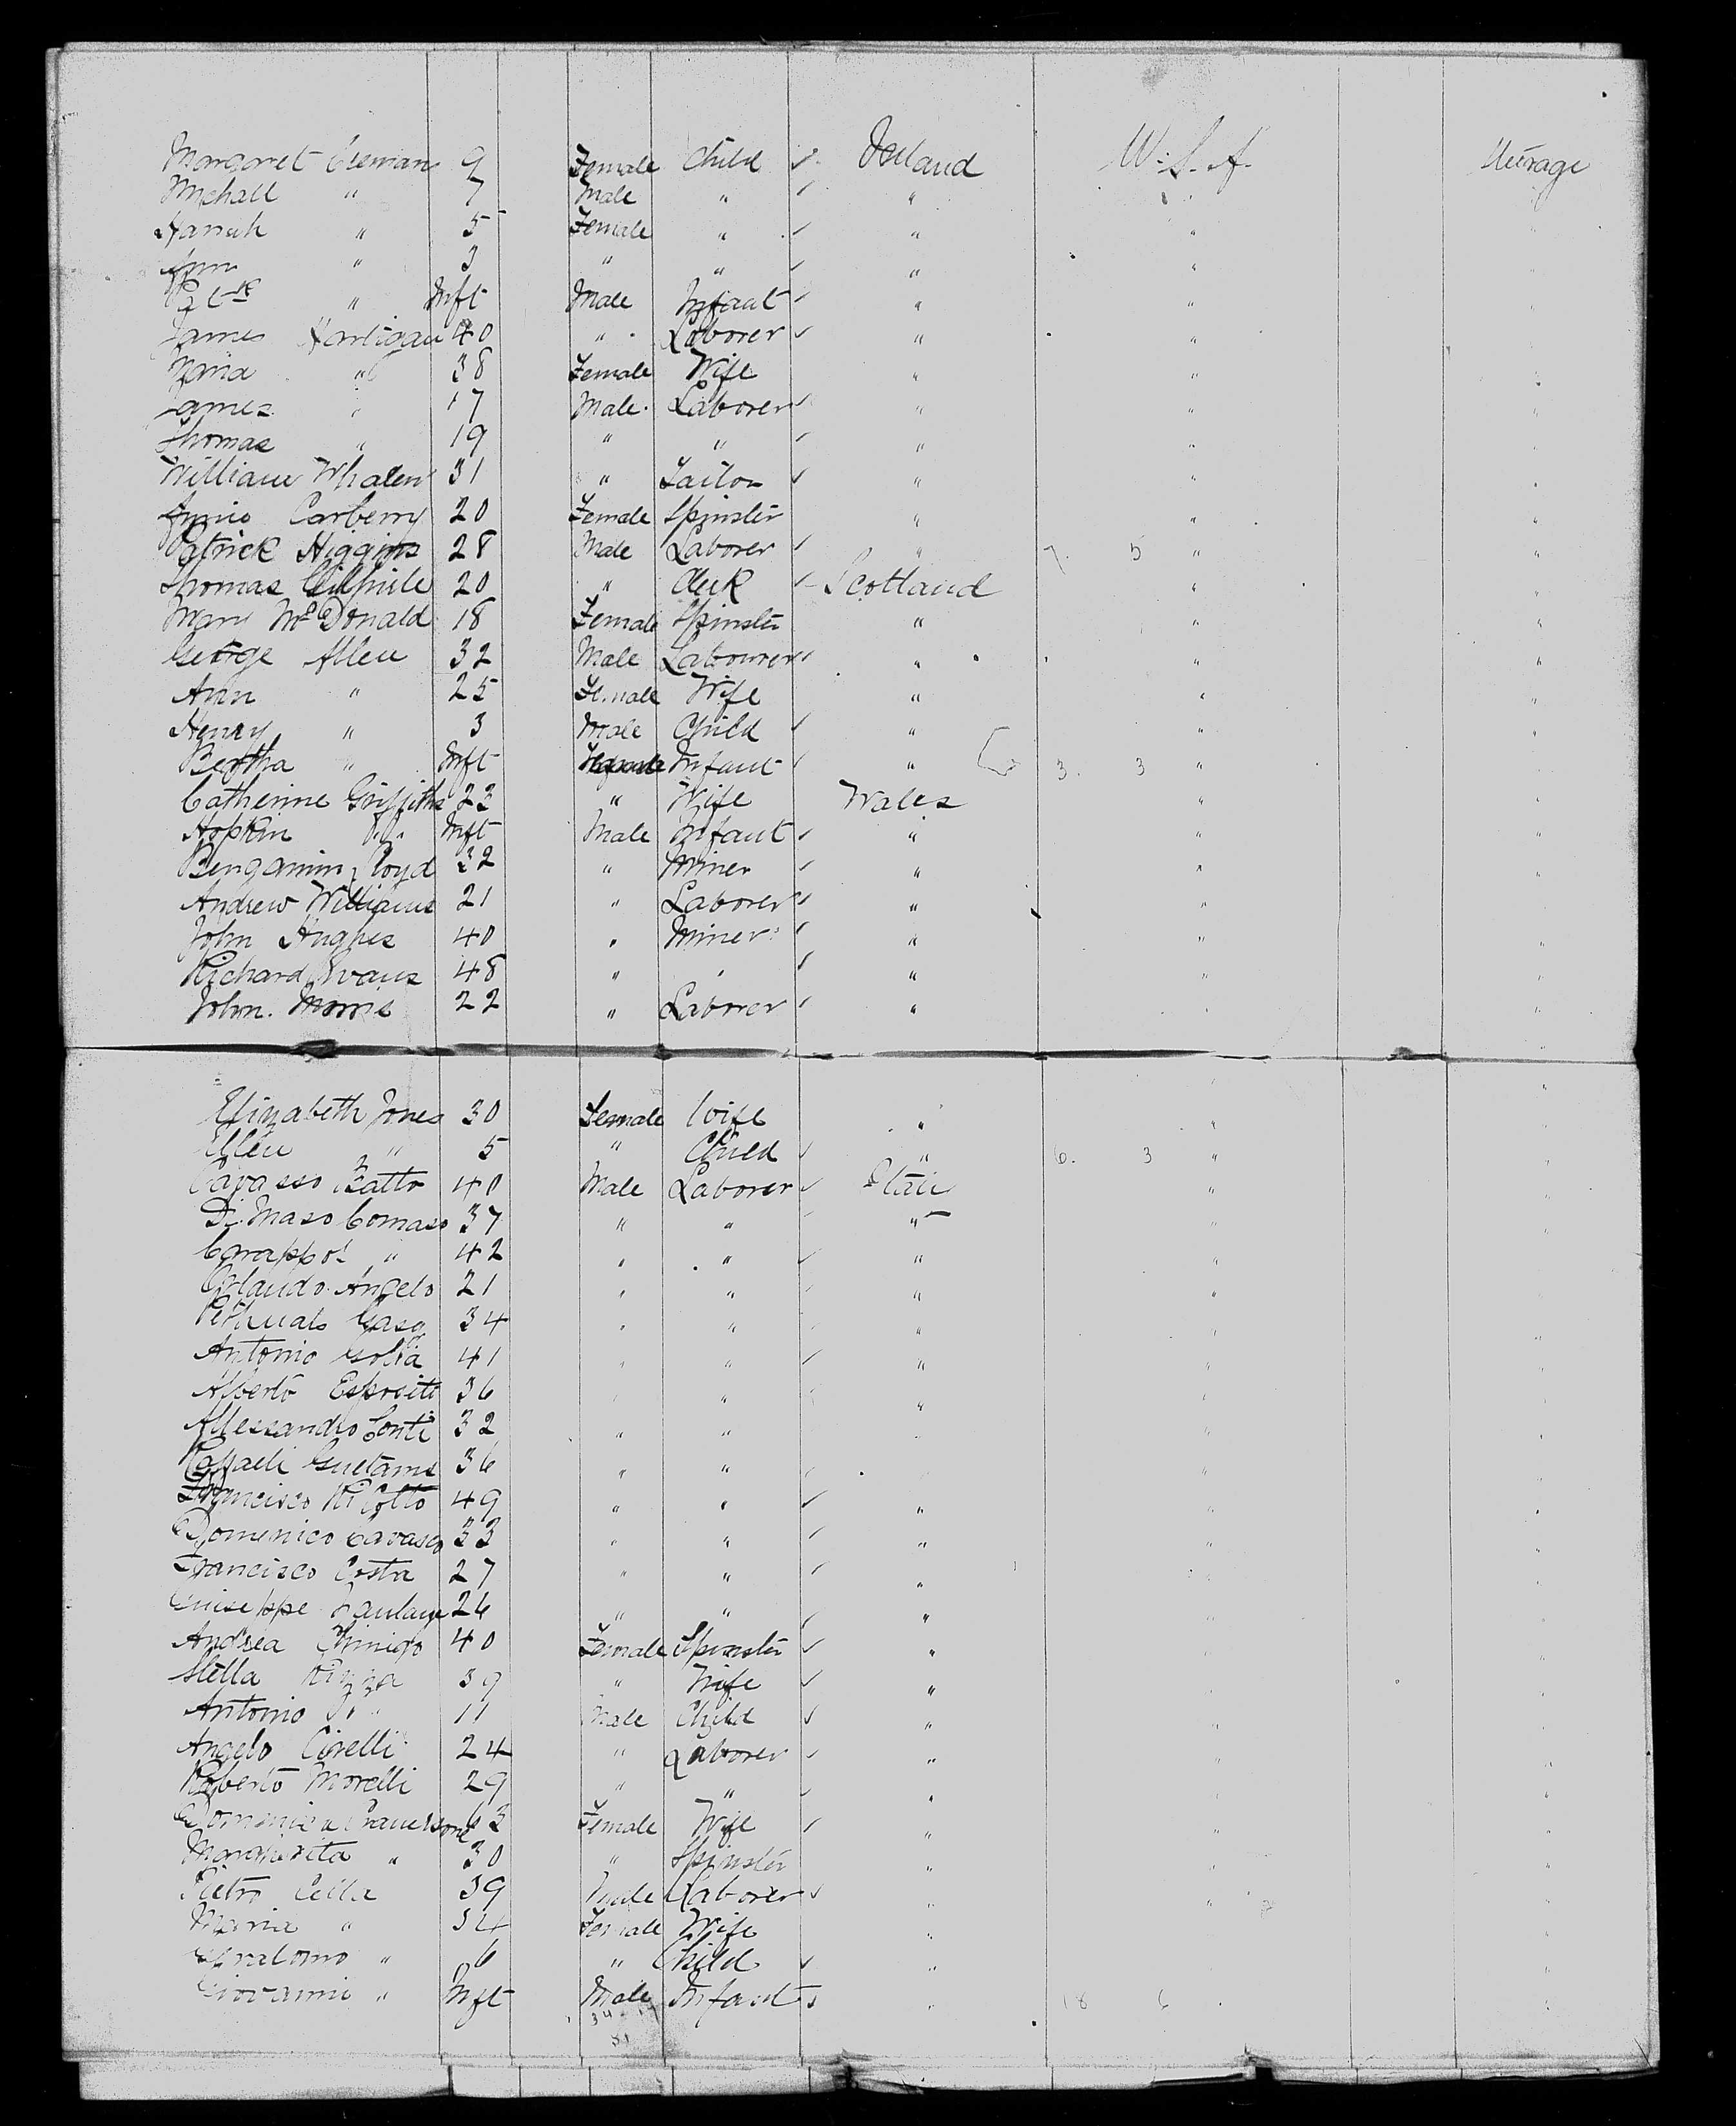 Margaret 9 Female Child Ireland U.S.A. Steerage
Michall " 7 Male " " "
Hanah " 5 Female " " "
Ann " 3 " " " "
Patk " Inft Male Infant " "
James Hartigan 40 " Laborer " "
Maria " 38 Female Wife " "
James " 17 Male Laborer " "
Thomas " 19 " " " "
William Whalen 31 " Tailor " "
Annie Carberry 20 Female Spinster " "
Patrick Higgins 28 Male Laborer " 7. 5 "
Thomas 20 " Clerk Scotland "
Mary McDonald 18 Female Spinster " "
George Allen 32 Male Labourer " "
Ann " 25 Female Wife " "
Henry " 3 Male Child " "
Bertha " Inft Female Infant " 3. 3 "
Catherine Griffiths 23 " Wife Wales "
Hopkin " Inft Male Infant " "
Bengamin Lloyd 32 " Miner " "
Andrew Williams 21 " Laborer " "
John Hughes 40 " Miner " "
Richard Evans 48 " " " "
John Morris 22 " Laborer " "
Elizabeth Jones 30 Female Wife " "
Ellen " 5 " Child " 6. 3 "
Cavasso Batto 40 Male Laborer Italy "
Di Maso Comaso 37 " " " "
" 42 " " " "
Orlando Angelo 21 " " " "
34 " " " "
Antonio Golia 41 " " " "
Alberto Esposito 36 " " " "
Allessandro Conti 32 " " " "
Raffaeli 36 " " " "
Francisco 49 " " " "
Domenico Cavasco 33 " " " "
Francisco Costa 27 " " " "
Guiseppe 26 " " " "
Andrea Chinigo 40 Female Spinster " "
Stella Rizza 39 " Wife " "
Antonio " 11 Male Child " "
Angelo Cirelli 24 " Laborer " "
Roberto Morelli 29 " " " "
Domenica 63 Female Wife " "
Margherita " 30 " Spinster " "
Pietro Cella 39 Male Laborer " "
Maria " 34 Female Wife " "
" 6 " Child " "
Giovanni " Inft Male Infant " 18 6
34 17
51